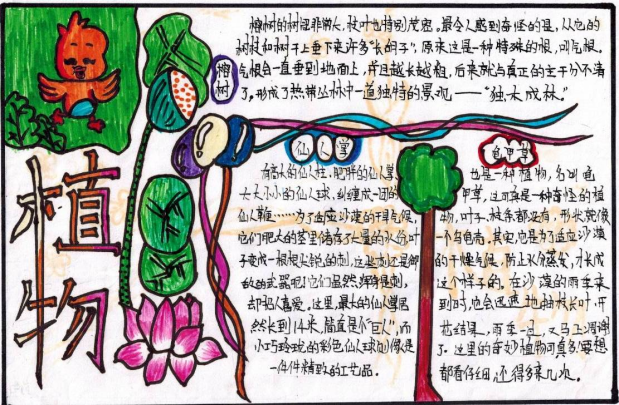 植物
榕树
榕树的树冠非常大，枝叶也特别茂密，最令人感到奇怪的是，从它的
树枝和树干上垂下来许多"长胡子"，原来这是一种特殊的根，叫气根。
气根会一直垂到地面上，并且越长越粗，后来就与真正的主干分不清
了，形成了热带丛林中一道独特的景观——"独木成林。"
仙人掌
有高大的仙人柱，肥胖的仙人掌
大大小小的仙人球，纠缠成一团的
仙人鞭……为了适应沙漠的干旱气候，
它们肥大的茎里储存了大量的水分叶
子变成一根根尖锐的刺，这些刺还是御
敌的武器呢！它们虽然浑身是刺，
却招人喜爱，这里，最大的仙人掌居
然长到14米，简直是个"巨人"，而
小巧玲珑的彩色仙人球则像是
一件件精致的工艺品。
龟甲草
也是一种植物，名叫龟
甲草，这可真是一种奇怪的植
物，叶子、枝条都没有，形状就像
一个乌龟壳，其实，它是为了适应沙漠
的干燥气候，防止水分蒸发，才长成
这个样子的，在沙漠的雨季来
到时，它会迅速地抽枝长叶，开
花结果，雨季一过，又马上凋谢
了。这里的奇妙植物可真多！要想
都看仔细，还得多来几次。